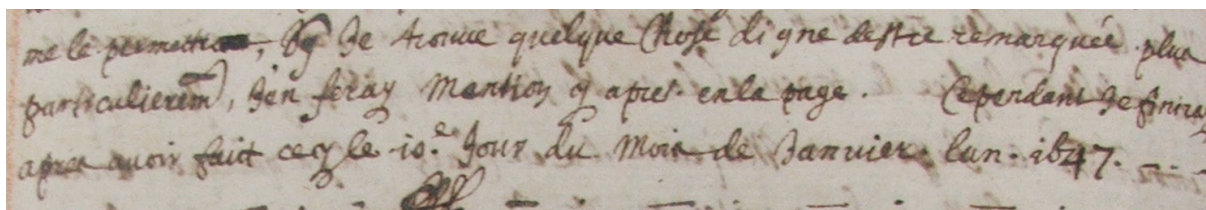 me le permettra, Sy Je trouue quelque Chose digne destre remarquée plus
particulierem̄, J'en feray Mention cy apres en la page. Cependant Je finiray
apres auoir faict cecy le 10.e Jour du Mois de Januier. lan. 1647.